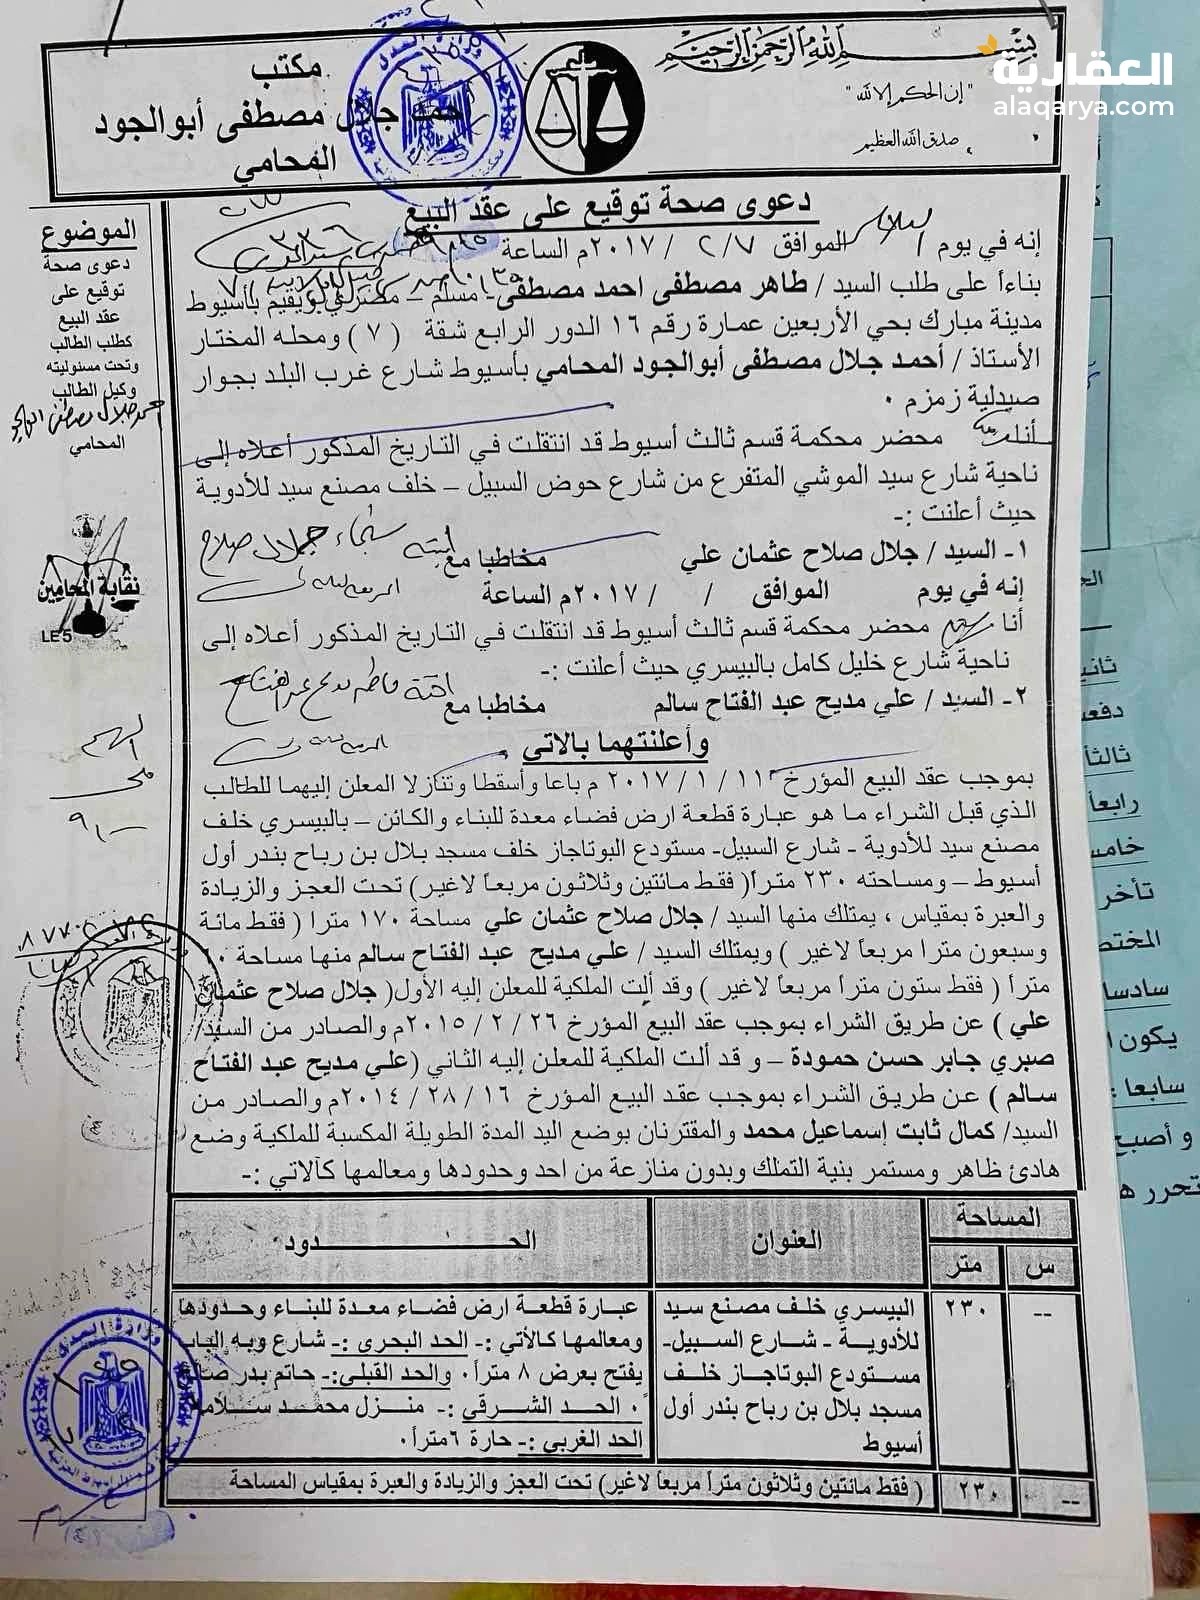 بسم الله الرحمن الرحيم
" إن الحكم إلا لله "
صدق الله العظيم
العقارية
alaqarya.com
مكتب
احمد جلال مصطفى أبوالجود
المحامي
دعوى صحة توقيع على عقد البيع
إنه في يوم الثلاثاء الموافق ٢/٧ / ٢٠١٧م الساعة
بناءأ على طلب السيد / طاهر مصطفى احمد مصطفى - مسلم – مصري ويقيم بأسيوط
مدينة مبارك بحي الأربعين عمارة رقم ١٦ الدور الرابع شقة (٧) ومحله المختار
الأستاذ / أحمد جلال مصطفى أبوالجود المحامي بأسيوط شارع غرب البلد بجوار
صيدلية زمزم ٠
أنا محضر محكمة قسم ثالث أسيوط قد انتقلت في التاريخ المذكور أعلاه إلى
ناحية شارع سيد الموشي المتفرع من شارع حوض السبيل – خلف مصنع سيد للأدوية
حيث أعلنت :-
١- السيد / جلال صلاح عثمان علي مخاطبا مع ابنته شيماء جلال صلاح
إنه في يوم الموافق / / ٢٠١٧م الساعة
أنا محضر محكمة قسم ثالث أسيوط قد انتقلت في التاريخ المذكور أعلاه إلى
ناحية شارع خليل كامل بالبيسري حيث أعلنت :-
٢- السيد / علي مديح عبد الفتاح سالم مخاطبا مع فاطمه مديح عبد الفتاح
وأعلنتهما بالاتي
بموجب عقد البيع المؤرخ ١١ / ١ / ٢٠١٧ م باعا وأسقطا وتنازلا المعلن إليهما للطالب
الذي قبل الشراء ما هو عبارة قطعة ارض فضاء معدة للبناء والكائن – بالبيسري خلف
مصنع سيد للأدوية - شارع السبيل- مستودع البوتاجاز خلف مسجد بلال بن رباح بندر أول
أسيوط – ومساحته ٢٣٠ مترأ( فقط مائتين وثلاثون مربعأ لاغير) تحت العجز والزيادة
والعبرة بمقياس ، يمتلك منها السيد / جلال صلاح عثمان علي مساحة ١٧٠ مترا ( فقط مائة
وسبعون مترا مربعأ لاغير ) ويمتلك السيد / علي مديح عبد الفتاح سالم منها مساحة
مترأ ( فقط ستون مترأ مربعأ لاغير ) وقد ألت الملكية للمعلن إليه الأول( جلال صلاح عثمان
علي ) عن طريق الشراء بموجب عقد البيع المؤرخ ٢٦ / ٢ / ٢٠١٥م والصادر من السيد
صبري جابر حسن حمودة – و قد ألت الملكية للمعلن إليه الثاني (علي مديح عبد الفتاح
سالم ) عن طريق الشراء بموجب عقد البيع المؤرخ ١٦ / ٢٨ / ٢٠١٤م والصادر من
السيد/ كمال ثابت إسماعيل محمد والمقترنان بوضع اليد المدة الطويلة المكسبة للملكية وضع
هادئ ظاهر ومستمر بنية التملك وبدون منازعة من احد وحدودها ومعالمها كآلاتي :-
المساحة العنوان الحــــــــدود
س متر
-- ٢٣٠ البيسري خلف مصنع سيد عبارة قطعة ارض فضاء معدة للبناء وحدودها
للأدوية - شارع السبيل- ومعالمها كالأتي :- الحد البحرى :- شارع وبه الباب
مستودع البوتاجاز خلف يفتح بعرض ٨ مترأ ٠ والحد القبلى:- حاتم بدر صالح
مسجد بلال بن رباح بندر أول ٠ الحد الشرقي :- منزل محمد سلامة
أسيوط الحد الغربي :- حارة ٦ مترأ ٠
-- ٢٣٠ ( فقط مائتين وثلاثون مترأ مربعأ لاغير) تحت العجز والزيادة والعبرة بمقياس المساحة
الموضوع
دعوى صحة
توقيع على
عقد البيع
كطلب الطالب
وتحت مسئوليته
وكيل الطالب
احمد جلال مصطفى ابوالجود
المحامي
نقابة المحامين
LE5
وزارة العدل
ثانيا
دفعة
ثالثأ
رابعأ
خامسا
تأخر
المختص
سادسا
يكون
سابعا :
و أصبح
تحرر